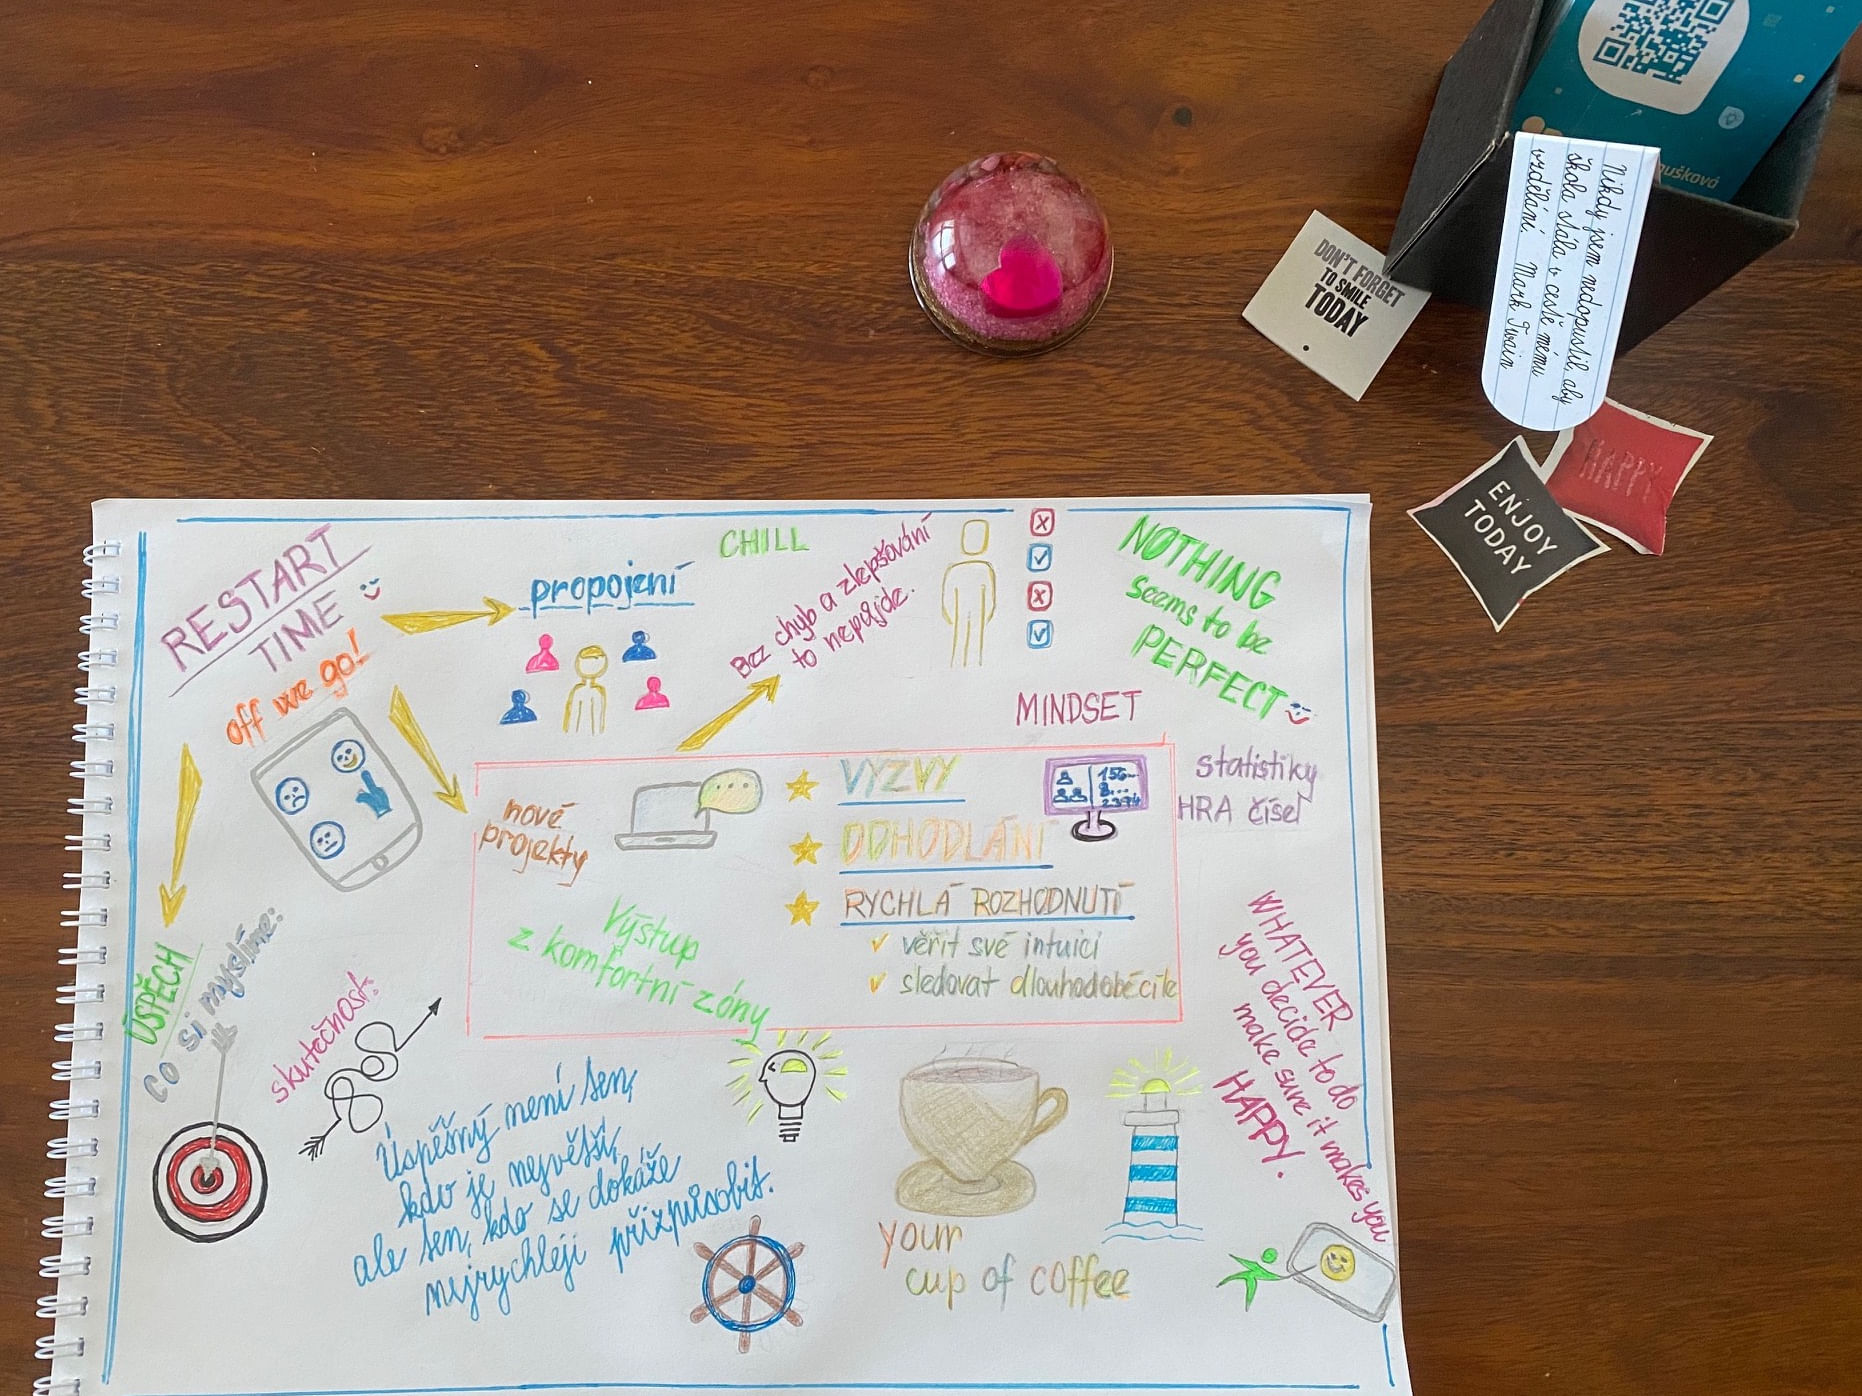 aušková
Nikdy jsem nedopustil, aby
škola stála v cestě mému
vzdělání. Mark Twain
DON'T FORGET
TO SMILE
TODAY
HAPPY
ENJOY
TODAY
RESTART
TIME
off we go!
propojení
CHILL
Bez chyb a zlepšování
to nepůjde.
NOTHING
seems to be
PERFECT
MINDSET
nové
projekty
VÝZVY
ODHODLÁNÍ
RYCHLÁ ROZHODNUTÍ
věřit své intuici
sledovat dlouhodobé cíle
Výstup
z komfortní zóny
156...
8...
2374
statistiky
HRA čísel
ÚSPĚCH
co si myslíme:
skutečnost:
Úspěšný není ten,
kdo je největší,
ale ten, kdo se dokáže
nejrychleji přizpůsobit.
your
cup of coffee
WHATEVER
you decide to do
make sure it makes you
HAPPY.